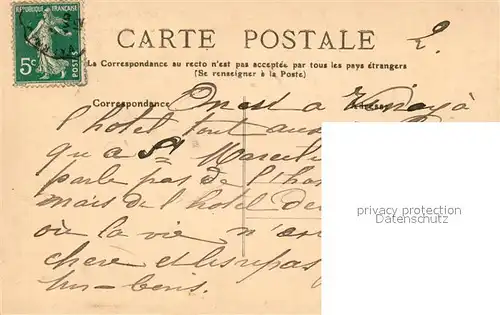 RÉPUBLIQUE FRANÇAISE
5c POSTES
CARTE POSTALE 2.
La Correspondance au recto n'est pas acceptée par tous les pays étrangers
(Se renseigner à la Poste)
Correspondance
On est a Vinay à
l'hotel tout aus
qu a St Marcelli
parle pas de l'
mais de l'hotel de
où la vie n'es
chere et les repas
privacy protection
Datenschutz